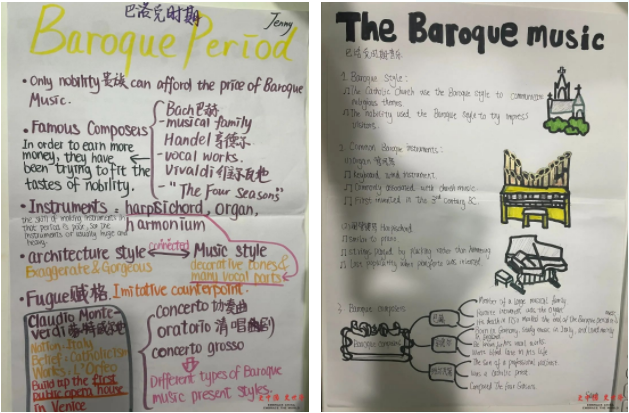 巴洛克时期
Jenny
Baroque Period
• Only nobility 贵族 can afford the price of Baroque
Music.
• Famous Composers
In order to earn more
money, they have
been trying to fit the
tastes of nobility.
Bach 巴赫
- musical family
Handel 亨德尔
- vocal works.
Vivaldi
- "The Four Seasons"
• Instruments: harpsichord, organ,
harmonium
the skill of making instruments in
that period is poor, so the
instruments are usually huge and
heavy.
• architecture style
connected
Music style
Exaggerate & Gorgeous
decorative tones &
many vocal parts
Fugue 赋格. Imitative counterpoint.
Claudio Monte-
verdi
Nation: Italy
Belief: Catholicism
Works: L'Orfeo
Build up the first
public opera house
in Venice
concerto 协奏曲
oratorio 清唱剧
concerto grosso
Different types of Baroque
music present styles.
The Baroque music
1. Baroque Style:
The Catholic Church use the Baroque style to communicate
religious themes.
The nobility used the Baroque style to try impress
visitors.
2. Common Baroque instruments:
Organ
Keyboard wind instrument.
Commonly associated with church music.
First invented in the 3rd Century BC.
Harpsichord
similar to piano.
strings played by plucking rather than hammering
Lost popularity when pianoforte was invented.
3. Baroque composers
Baroque composers
Member of a large musical family
Favorite instrument was the organ
Born in Germany, study music in Italy, and lived mostly
in England
was a Catholic priest
Composed The Four Seasons